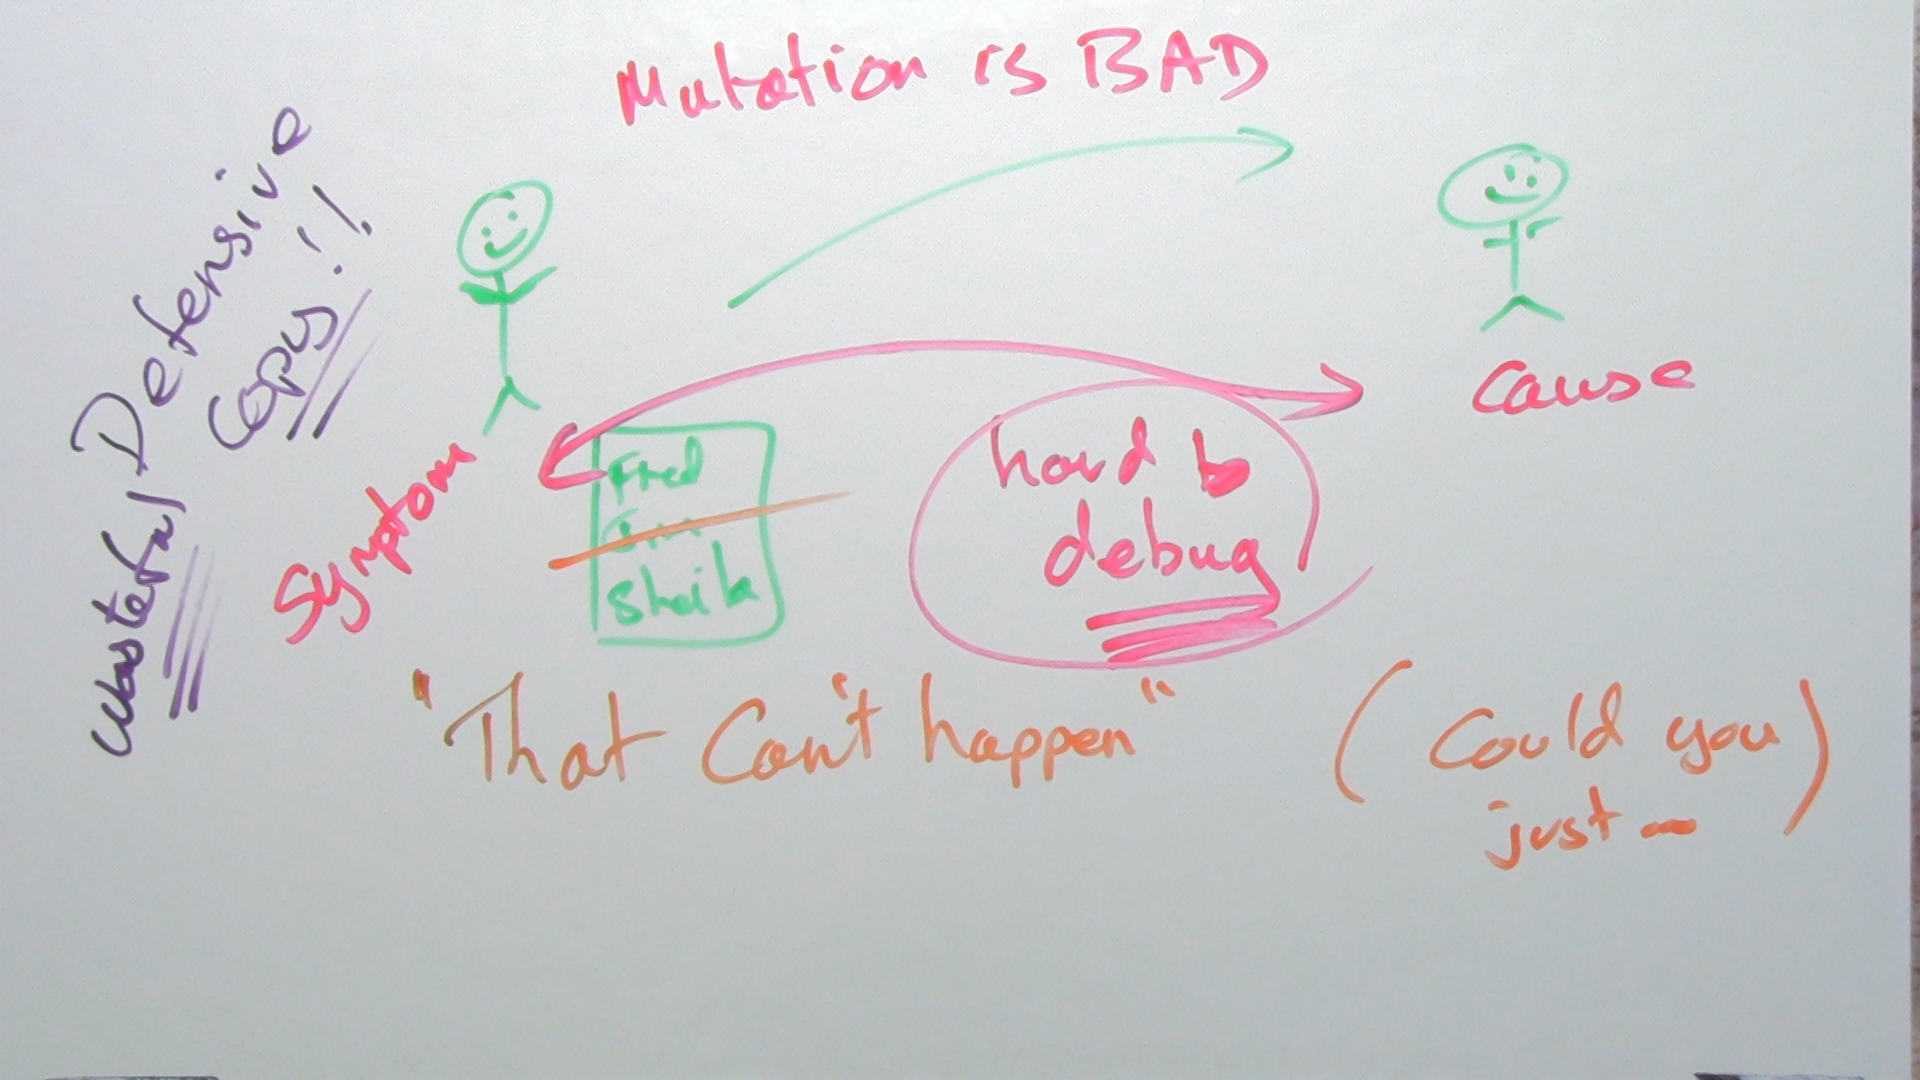 Mutation is BAD
Defensive
copy!!
wasteful
Symptom
Fred
Jim
Sheila
hard to
debug
cause
"That Can't happen"
(Could you)
just...